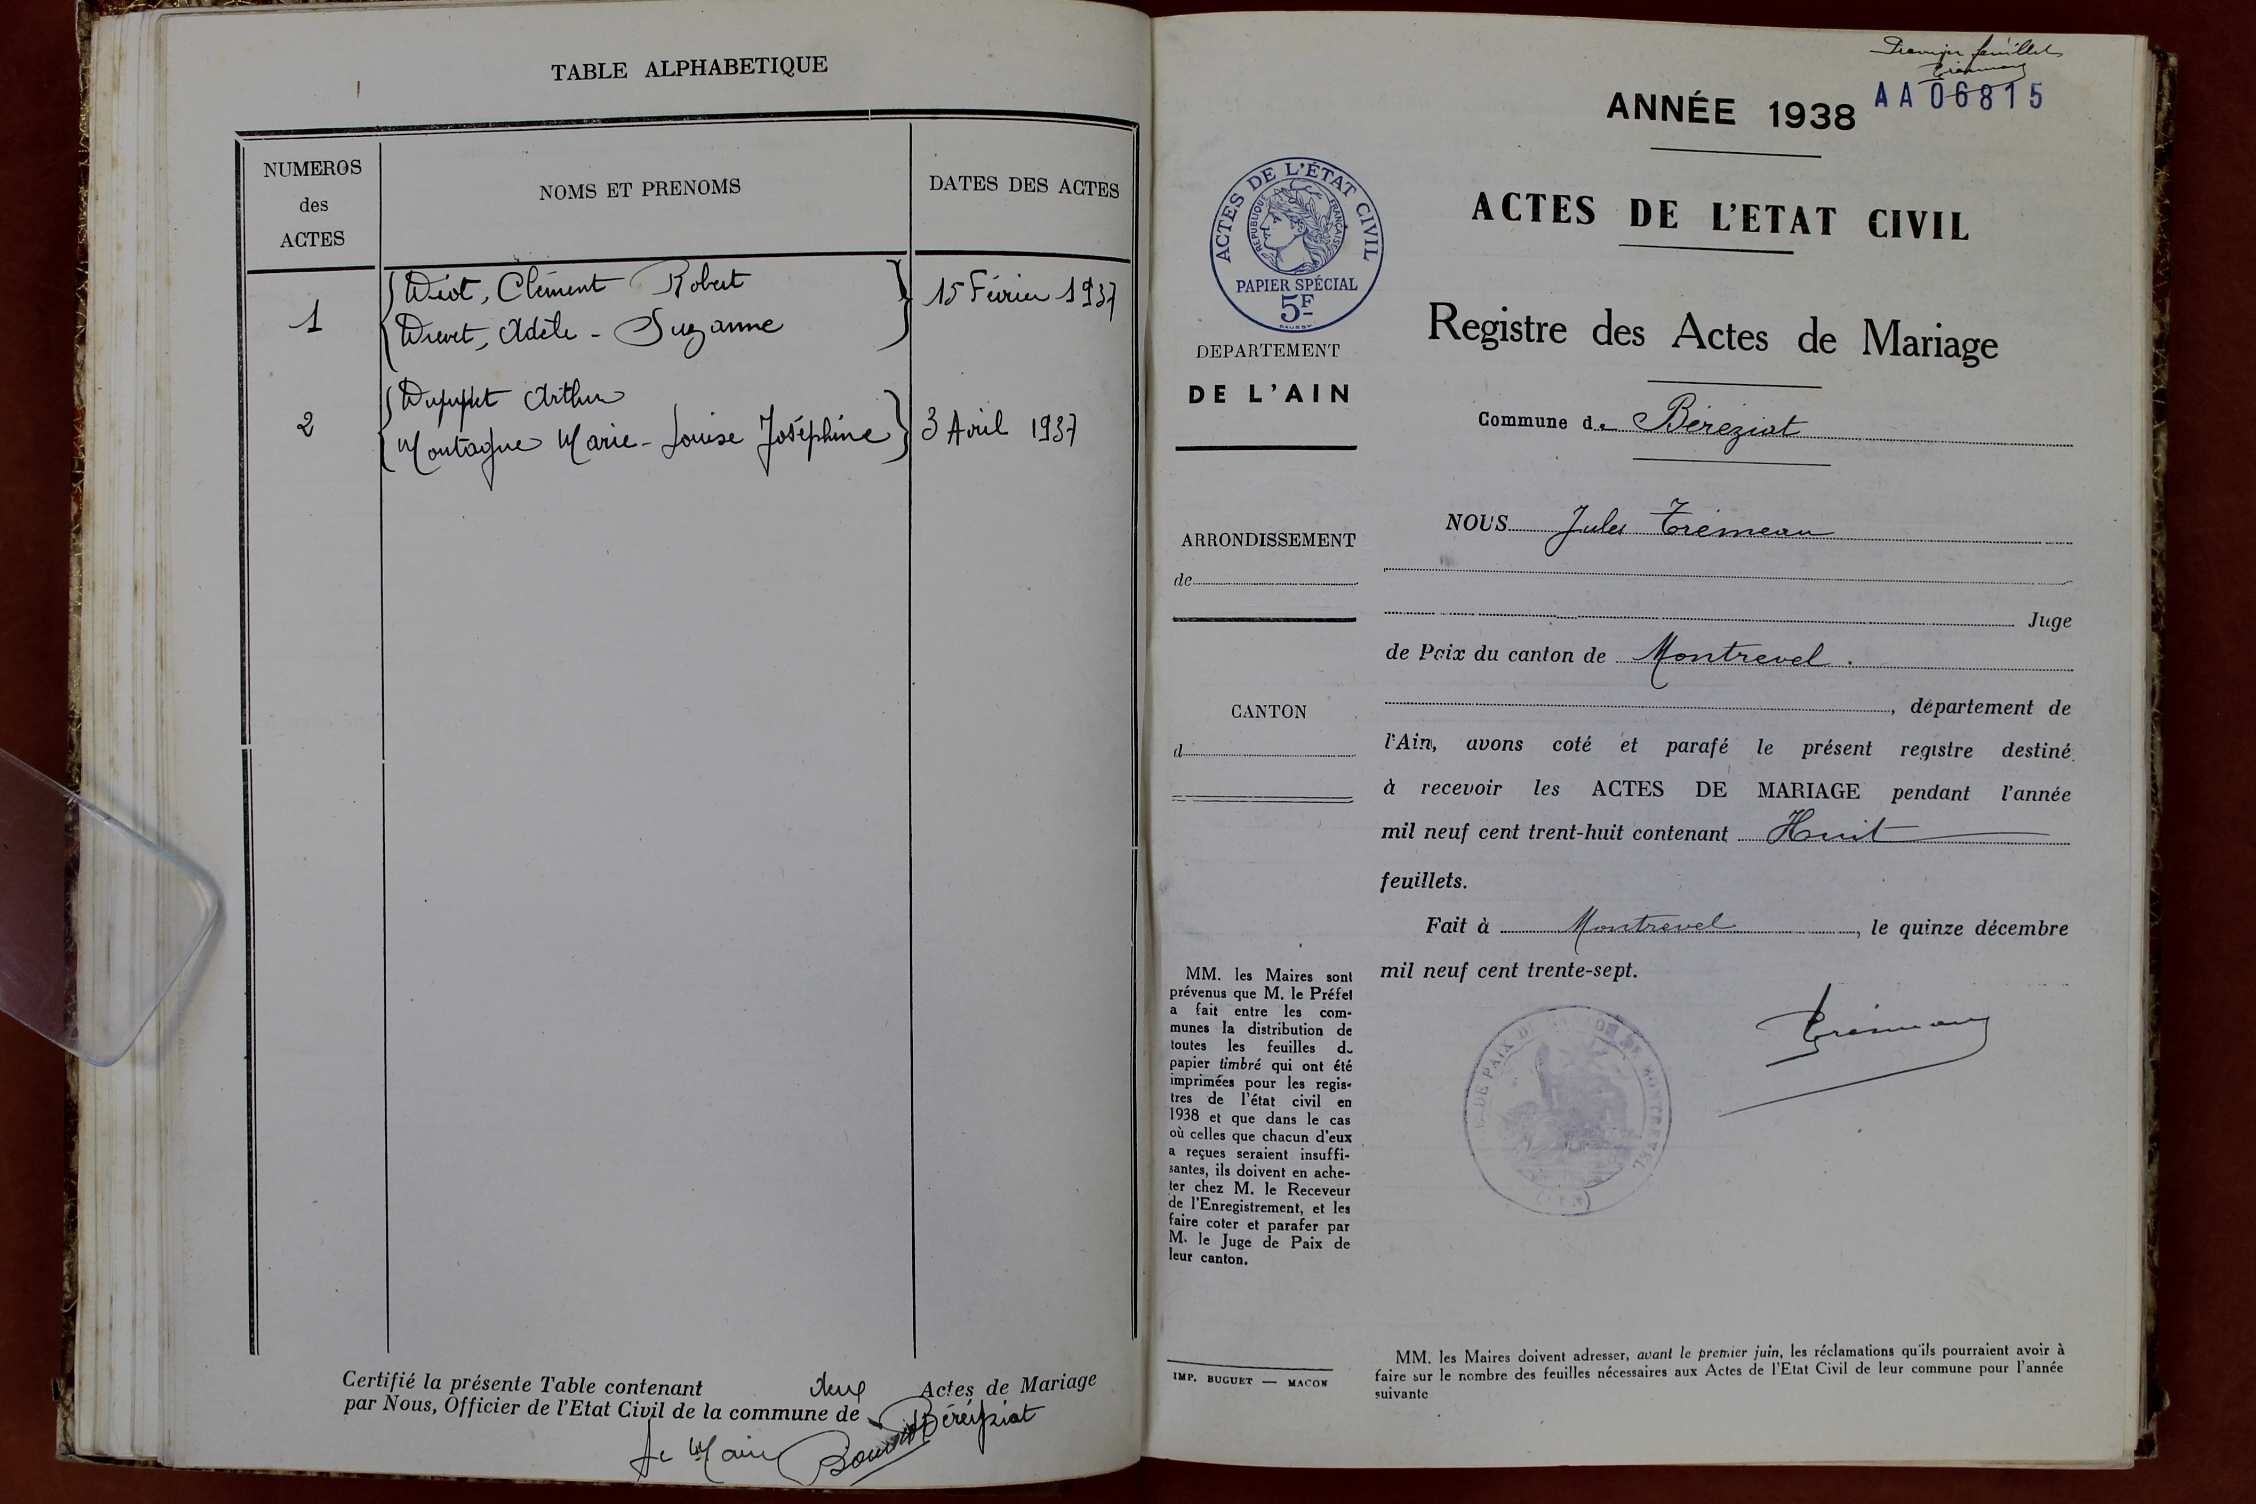 TABLE ALPHABETIQUE
NUMEROS
des
ACTES
NOMS ET PRENOMS
DATES DES ACTES
1
Clément Robert
Adèle - Suzanne
15 Février 1937
2
Arthur
Montagne Marie-Louise Joséphine
3 Avril 1937
Certifié la présente Table contenant deux Actes de Mariage
par Nous, Officier de l'Etat Civil de la commune de Béréziat
Le Maire
Premier feuillet
AA06815
ANNÉE 1938
ACTES DE L'ÉTAT CIVIL
REPUBLIQUE FRANÇAISE
PAPIER SPÉCIAL
5F
ACTES DE L'ETAT CIVIL
Registre des Actes de Mariage
DEPARTEMENT
DE L'AIN
Commune de Béréziat
ARRONDISSEMENT
de
CANTON
d
NOUS Jules Trémeau
Juge
de Paix du canton de Montrevel.
, département de
l'Ain, avons coté et parafé le présent registre destiné
à recevoir les ACTES DE MARIAGE pendant l'année
mil neuf cent trent-huit contenant Huit
feuillets.
Fait à Montrevel, le quinze décembre
mil neuf cent trente-sept.
Trémeau
MM. les Maires sont
prévenus que M. le Préfet
a fait entre les com-
munes la distribution de
toutes les feuilles de
papier timbré qui ont été
imprimées pour les regis-
tres de l'état civil en
1938 et que dans le cas
où celles que chacun d'eux
a reçues seraient insuffi-
santes, ils doivent en ache-
ter chez M. le Receveur
de l'Enregistrement, et les
faire coter et parafer par
M. le Juge de Paix de
leur canton.
IMP. BUGUET — MACON
MM. les Maires doivent adresser, avant le premier juin, les réclamations qu'ils pourraient avoir à
faire sur le nombre des feuilles nécessaires aux Actes de l'Etat Civil de leur commune pour l'année
suivante